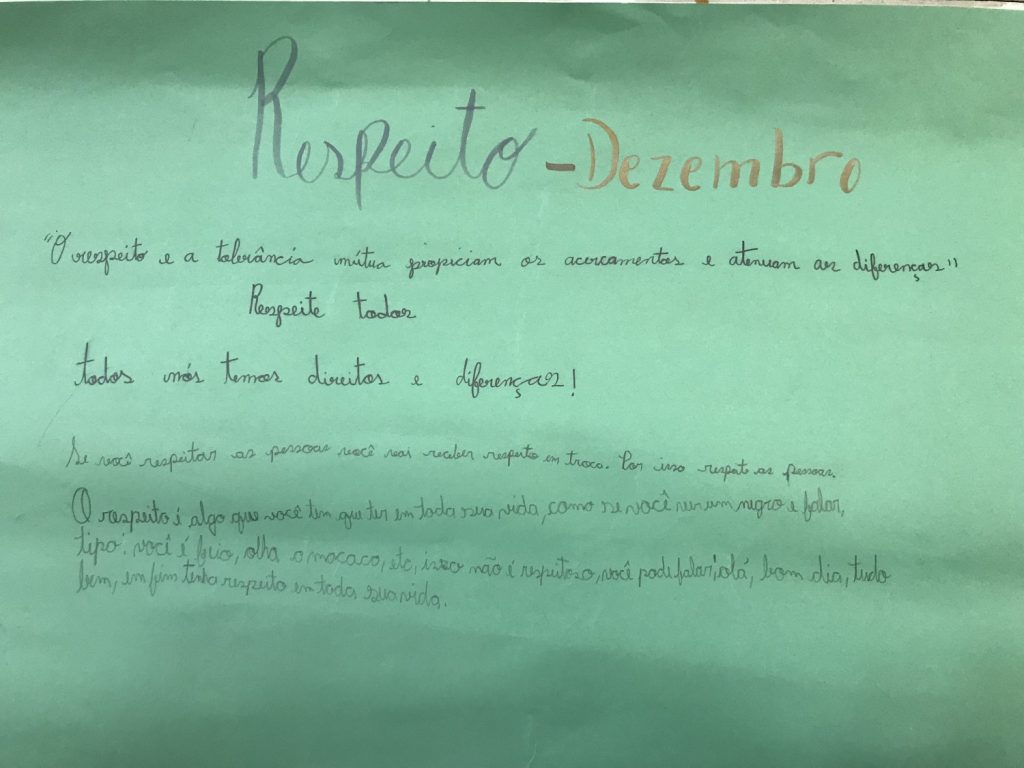 Respeito - Dezembro
"O respeito e a tolerância mútua propiciam os acercamentos e atenuam as diferenças"
Respeite todos
todos nós temos direitos e diferenças!
Se você respeitar as pessoas você vai receber respeito em troca. Por isso respeite as pessoas.
O respeito é algo que você tem que ter em toda sua vida, como se você ver um negro e falar,
tipo: você é feio, olha o macaco, etc, isso não é respeitoso, você pode falar: olá, bom dia, tudo
bem, em fim tenha respeito em toda sua vida.